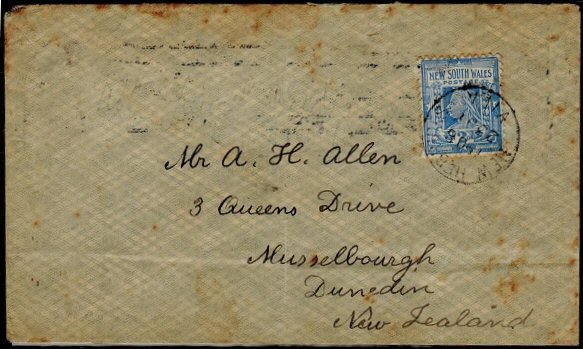 NEW SOUTH WALES
POSTAGE
Mr A. H. Allen
3 Queens Drive
Musselbourgh
Dunedin
New Zealand